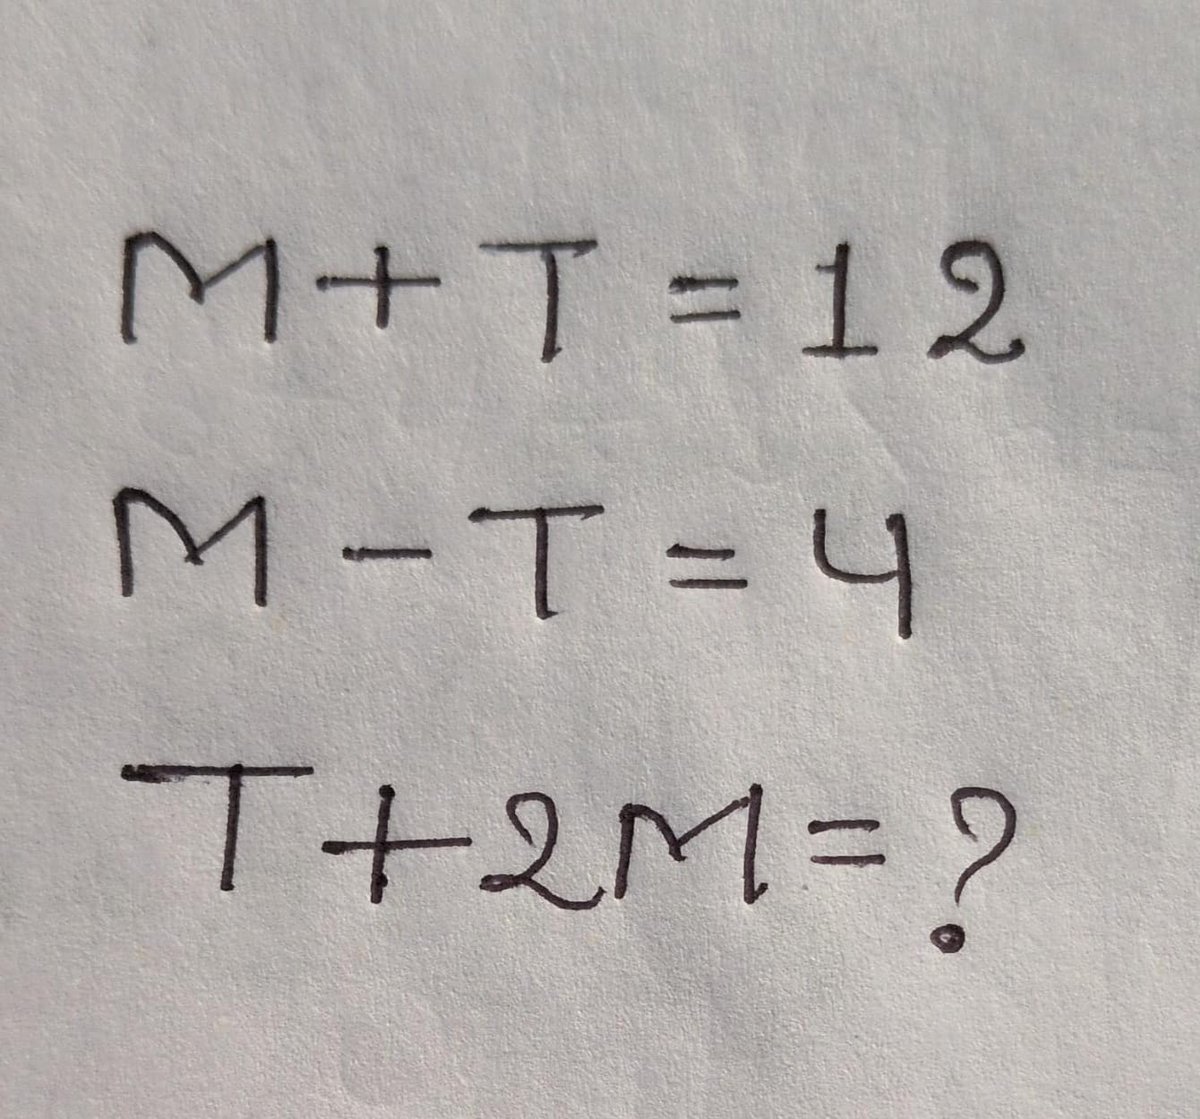 M + T = 12
M - T = 4
T + 2M = ?